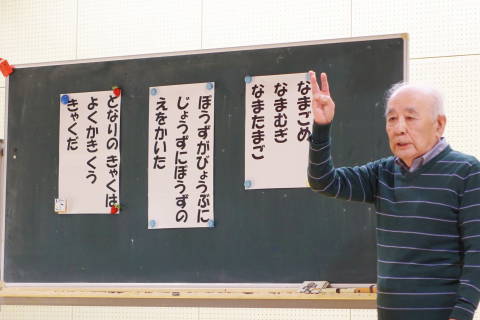 なまごめ
なまむぎ
なまたまご
ぼうずがびょうぶに
じょうずにぼうずの
えをかいた
となりの きゃくは
よくかきくう
きゃくだ